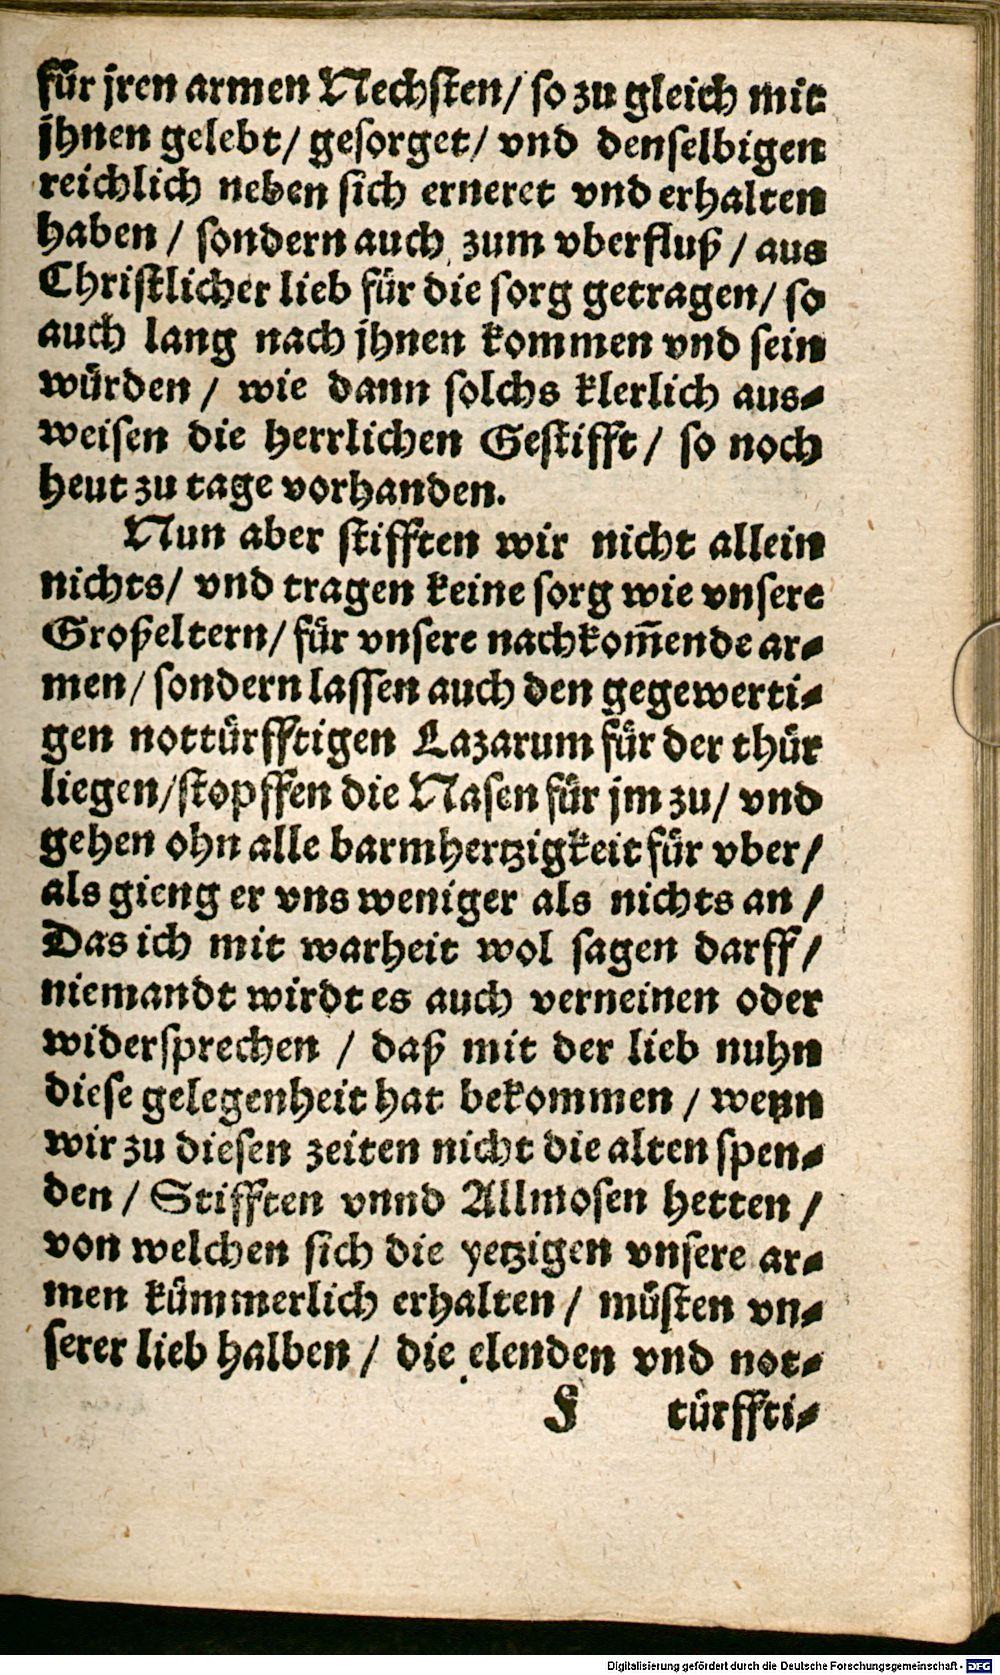 für jren armen Nechsten/ so zu gleich mit
jhnen gelebt/ gesorget/ vnd denselbigen
reichlich neben sich erneret vnd erhalten
haben / sondern auch zum vberfluß / aus
Christlicher lieb für die sorg getragen/ so
auch lang nach jhnen kommen vnd sein
würden / wie dann solchs klerlich aus-
weisen die herrlichen Gestifft/ so noch
heut zu tage vorhanden.
Nun aber stifften wir nicht allein
nichts/ vnd tragen keine sorg wie vnsere
Großeltern/ für vnsere nachkom̄ende ar-
men/ sondern lassen auch den gegewerti-
gen nottürfftigen Lazarum für der thür
liegen/stopffen die Nasen für jm zu/ vnd
gehen ohn alle barmhertzigkeit für vber/
als gieng er vns weniger als nichts an /
Das ich mit warheit wol sagen darff/
niemandt wirdt es auch verneinen oder
widersprechen / daß mit der lieb nuhn
diese gelegenheit hat bekommen / wenn
wir zu diesen zeiten nicht die alten spen-
den / Stifften vnnd Allmosen hetten /
von welchen sich die yetzigen vnsere ar-
men kümmerlich erhalten / müsten vn-
serer lieb halben / die elenden vnd not-
F türffti-
Digitalisierung gefördert durch die Deutsche Forschungsgemeinschaft - DFG